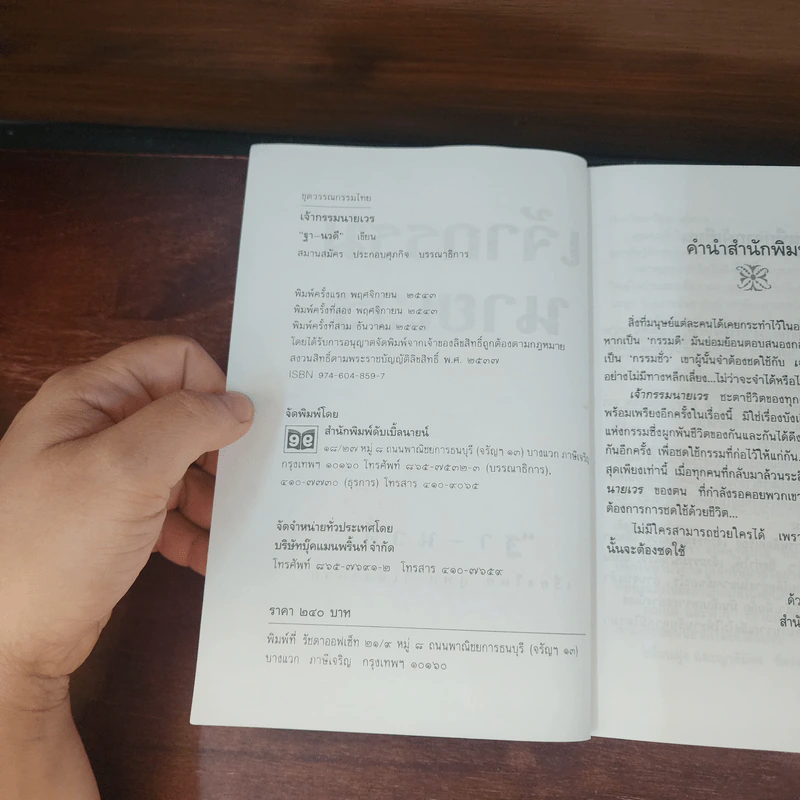 ชุดวรรณกรรมไทย
เจ้ากรรมนายเวร
"ฐา-นวดี" เขียน
สมานสมัคร ประกอบศุภกิจ บรรณาธิการ
พิมพ์ครั้งแรก พฤศจิกายน ๒๕๔๓
พิมพ์ครั้งที่สอง พฤศจิกายน ๒๕๔๓
พิมพ์ครั้งที่สาม ธันวาคม ๒๕๔๓
โดยได้รับการอนุญาตจัดพิมพ์จากเจ้าของลิขสิทธิ์ถูกต้องตามกฎหมาย
สงวนสิทธิ์ตามพระราชบัญญัติลิขสิทธิ์ พ.ศ. ๒๕๓๗
ISBN 974-604-859-7
จัดพิมพ์โดย
๑๑
สำนักพิมพ์ดับเบิ้ลนายน์
๑๘/๒๗ หมู่ ๘ ถนนพาณิชยการธนบุรี (จรัญฯ ๑๓) บางแวก ภาษีเจริญ
กรุงเทพฯ ๑๐๑๖๐ โทรศัพท์ ๘๖๕-๗๕๓๒-๓ (บรรณาธิการ),
๔๑๐-๗๗๓๐ (ธุรการ) โทรสาร ๔๑๐-๙๐๖๕
จัดจำหน่ายทั่วประเทศโดย
บริษัทบุ๊คแมนพริ้นท์ จำกัด
โทรศัพท์ ๘๖๕-๗๖๙๑-๒ โทรสาร ๔๑๐-๗๖๕๙
ราคา ๒๔๐ บาท
พิมพ์ที่ รัชดาออฟเซ็ท ๒๑/๙ หมู่ ๘ ถนนพาณิชยการธนบุรี (จรัญฯ ๑๓)
บางแวก ภาษีเจริญ กรุงเทพฯ ๑๐๑๖๐
คำนำสำนักพิมพ
สิ่งที่มนุษย์แต่ละคนได้เคยกระทำไว้ใน
หากเป็น 'กรรมดี' มันย่อมย้อนตอบสนอง
เป็น 'กรรมชั่ว' เขาผู้นั้นจำต้องชดใช้กับ
อย่างไม่มีทางหลีกเลี่ยง...ไม่ว่าจะจำได้หรือ
เจ้ากรรมนายเวร ชะตาชีวิตของทุก
พร้อมเพรียงอีกครั้งในเรื่องนี้ มิใช่เรื่องบัง
แห่งกรรมซึ่งผูกพันชีวิตของกันและกันได้ดึง
กันอีกครั้ง เพื่อชดใช้กรรมที่ก่อไว้ให้แก่กัน
สุดเพียงเท่านี้ เมื่อทุกคนที่กลับมาล้วน
นายเวร ของตน ที่กำลังรอคอยพวกเขา
ต้องการการชดใช้ด้วยชีวิต...
ไม่มีใครสามารถช่วยใครได้ เพรา
นั้นจะต้องชดใช้
ด้ว
สำนั